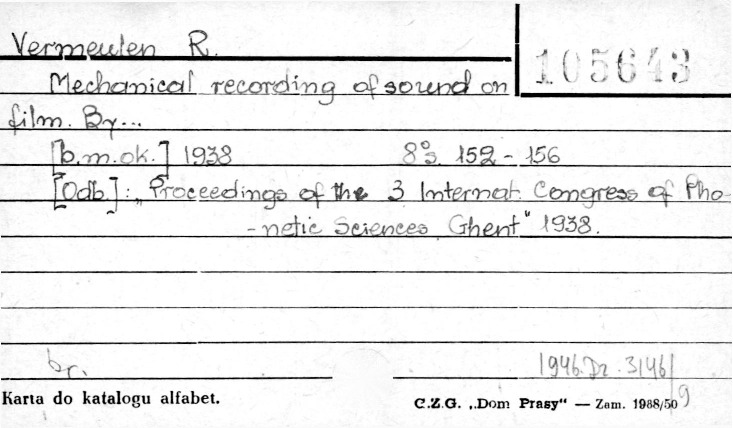 Vermeulen R.
105643
Mechanical recording of sound on
film. By...
[b.m.ok.] 1938 8°s. 152 - 156
[Odb.]: „Proceedings of the 3 Internat. Congress of Pho-
-netic Sciences Ghent" 1938.
br.
1946.Dz.3146/9
Karta do katalogu alfabet.
C.Z.G. „Dom Prasy" — Zam. 1988/50